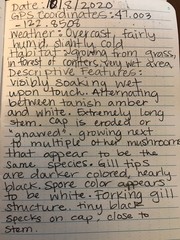 Date: 10/8/2020
GPS Coordinates: 47.003
-122.9509
Weather: Overcast, fairly
humid, slightly cold
Habitat: growing from grass,
in forest of conifers, very wet area,
Descriptive Features:
Visibly soaking wet
upon touch. Alternating
between tanish amber
and white. Extremely long
stem. Cap is eroded or
"gnawed". growing next
to multiple other mushrooms
that appear to be the
same species. Gill tips
are darker colored, nearly
black. Spore color appears
to be white. Forking gill
structure. tiny black
specks on cap, close to
stem.